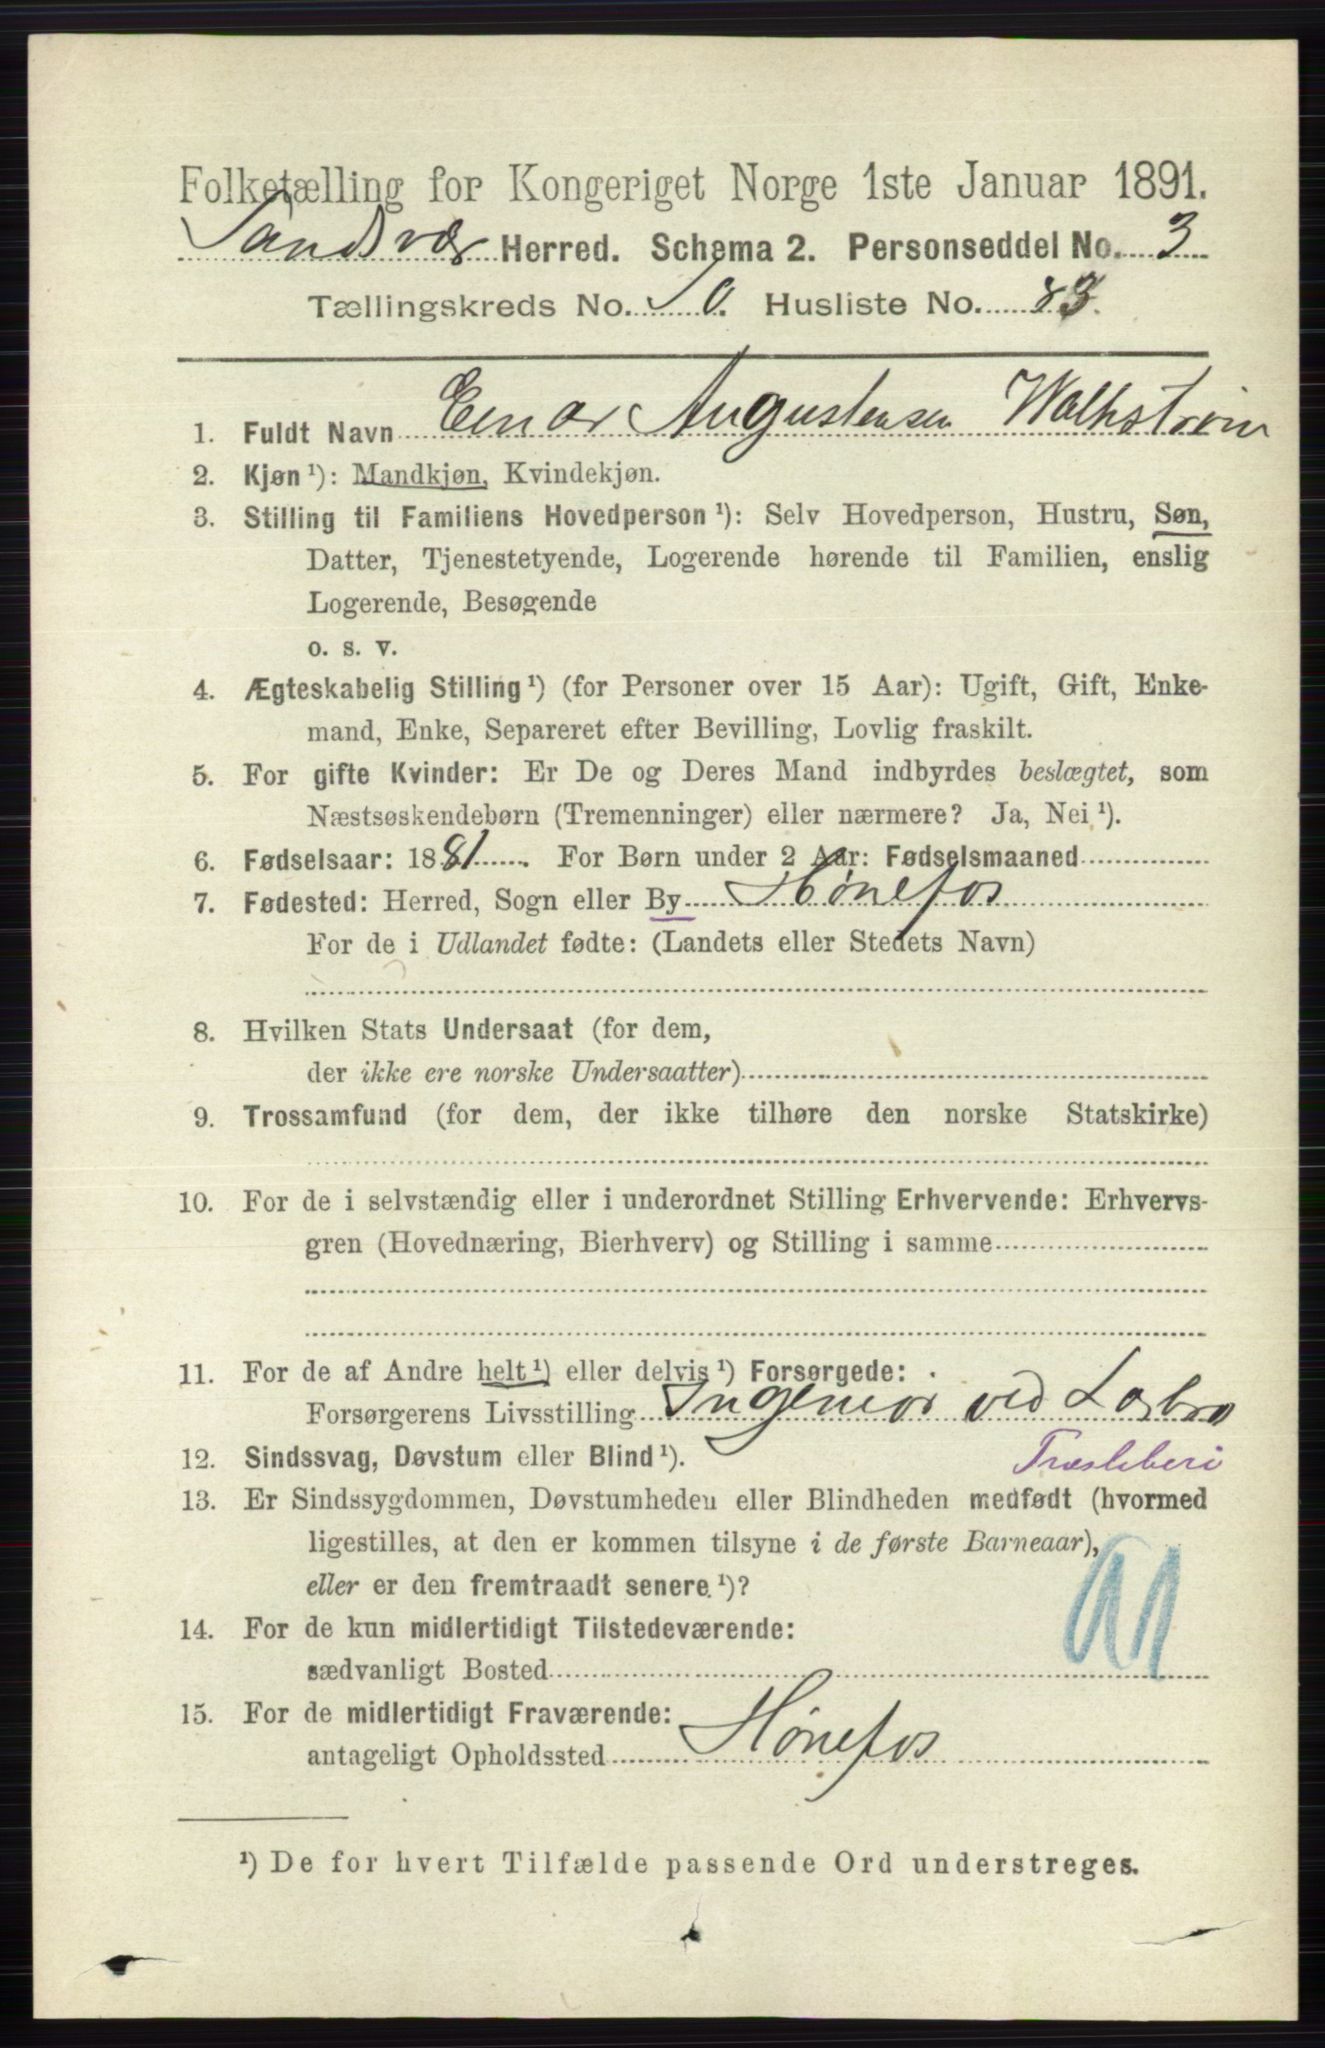 Folketælling for Kongeriget Norge 1ste Januar 1891.
Sandsvær Herred. Schema 2. Personseddel No. 3
Tællingskreds No. 10. Husliste No. 83.
1. Fuldt Navn Einar Augustensen Walkstrøm
2. Kjøn ¹): Mandkjøn, Kvindekjøn.
3. Stilling til Familiens Hovedperson ¹): Selv Hovedperson, Hustru, Søn,
Datter, Tjenestetyende, Logerende hørende til Familien, enslig
Logerende, Besøgende
o. s. v.
4. Ægteskabelig Stilling ¹) (for Personer over 15 Aar): Ugift, Gift, Enke-
mand, Enke, Separeret efter Bevilling, Lovlig fraskilt.
5. For gifte Kvinder: Er De og Deres Mand indbyrdes beslægtet, som
Næstsøskendebørn (Tremenninger) eller nærmere? Ja, Nei ¹).
6. Fødselsaar: 1881. For Børn under 2 Aar: Fødselsmaaned
7. Fødested: Herred, Sogn eller By Hønefos
For de i Udlandet fødte: (Landets eller Stedets Navn)
8. Hvilken Stats Undersaat (for dem,
der ikke ere norske Undersaatter)
9. Trossamfund (for dem, der ikke tilhøre den norske Statskirke)
10. For de i selvstændig eller i underordnet Stilling Erhvervende: Erhvervs-
gren (Hovednæring, Bierhverv) og Stilling i samme
11. For de af Andre helt ¹) eller delvis ¹) Forsørgede:
Forsørgerens Livsstilling Ingeniør ved Labro
12. Sindssvag, Døvstum eller Blind ¹). Træsliberi
13. Er Sindssygdommen, Døvstumheden eller Blindheden medfødt (hvormed
ligestilles, at den er kommen tilsyne i de første Barneaar),
eller er den fremtraadt senere ¹)?
14. For de kun midlertidigt Tilstedeværende:
sædvanligt Bosted
15. For de midlertidigt Fraværende:
antageligt Opholdssted Hønefos
¹) De for hvert Tilfælde passende Ord understreges.